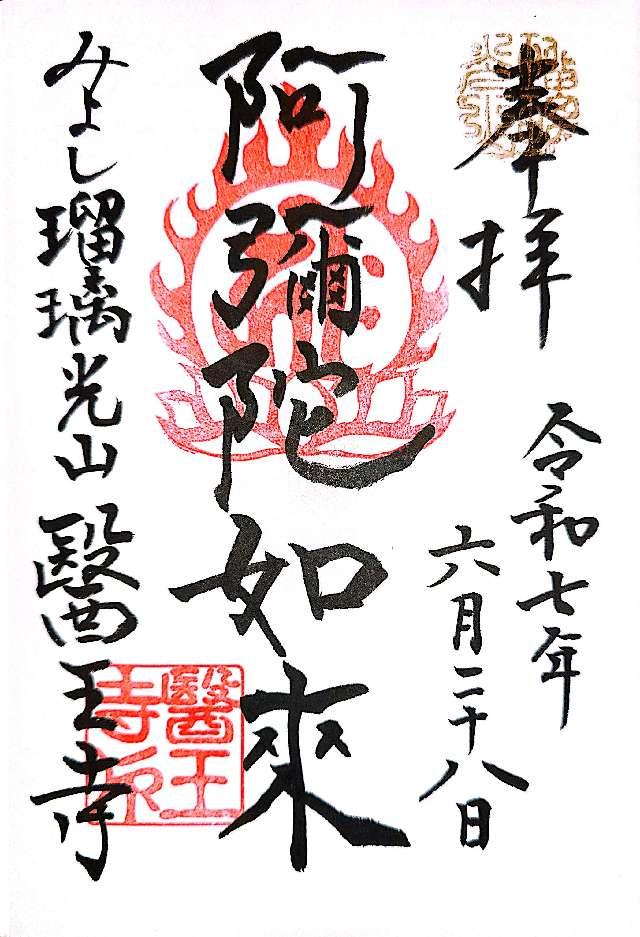 奉拝
令和七年
六月二十八日
阿彌陀如來
みよし瑠璃光山
醫王寺
醫王
寺印